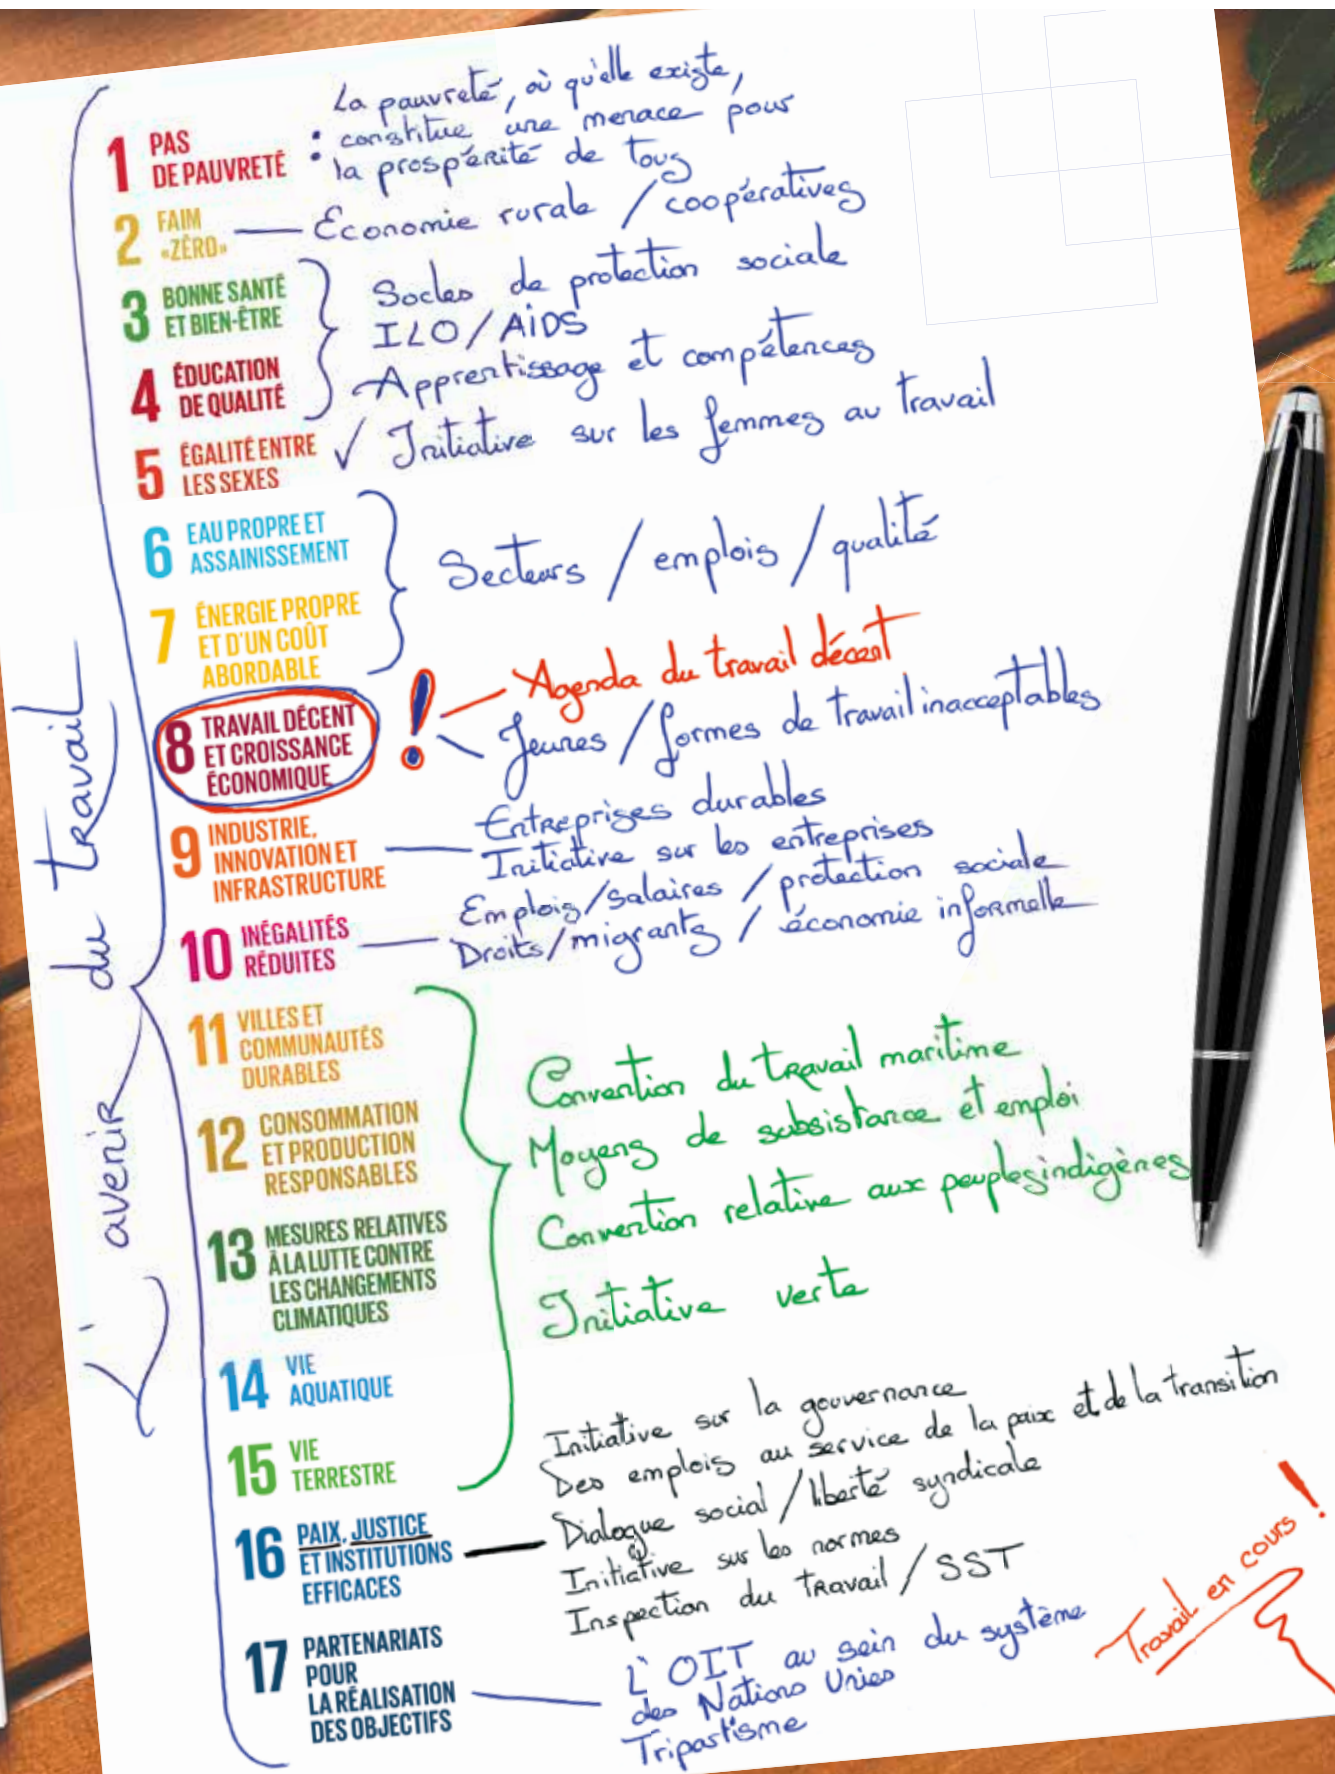 L'avenir du travail
1 PAS
DE PAUVRETÉ
: La pauvreté, où qu'elle existe,
constitue une menace pour
la prospérité de tous
2 FAIM
«ZÉRO»
Économie rurale / coopératives
3 BONNE SANTÉ
ET BIEN-ÊTRE
4 ÉDUCATION
DE QUALITÉ
Socles de protection sociale
ILO/AIDS
Apprentissage et compétences
5 ÉGALITÉ ENTRE
LES SEXES
✓ Initiative sur les femmes au travail
6 EAU PROPRE ET
ASSAINISSEMENT
7 ÉNERGIE PROPRE
ET D'UN COÛT
ABORDABLE
Secteurs / emplois / qualité
8 TRAVAIL DÉCENT
ET CROISSANCE
ÉCONOMIQUE
!
Agenda du travail décent
Jeunes / formes de travail inacceptables
9 INDUSTRIE,
INNOVATION ET
INFRASTRUCTURE
Entreprises durables
Initiative sur les entreprises
10 INÉGALITÉS
RÉDUITES
Emplois/salaires / protection sociale
Droits/migrants / économie informelle
11 VILLES ET
COMMUNAUTÉS
DURABLES
12 CONSOMMATION
ET PRODUCTION
RESPONSABLES
13 MESURES RELATIVES
À LA LUTTE CONTRE
LES CHANGEMENTS
CLIMATIQUES
14 VIE
AQUATIQUE
15 VIE
TERRESTRE
Convention du travail maritime
Moyens de subsistance et emploi
Convention relative aux peuples indigènes
Initiative verte
16 PAIX, JUSTICE
ET INSTITUTIONS
EFFICACES
Initiative sur la gouvernance
Des emplois au service de la paix et de la transition
Dialogue social / liberté syndicale
Initiative sur les normes
Inspection du travail / SST
17 PARTENARIATS
POUR
LA RÉALISATION
DES OBJECTIFS
L'OIT au sein du système
des Nations Unies
Tripartisme
Travail en cours !